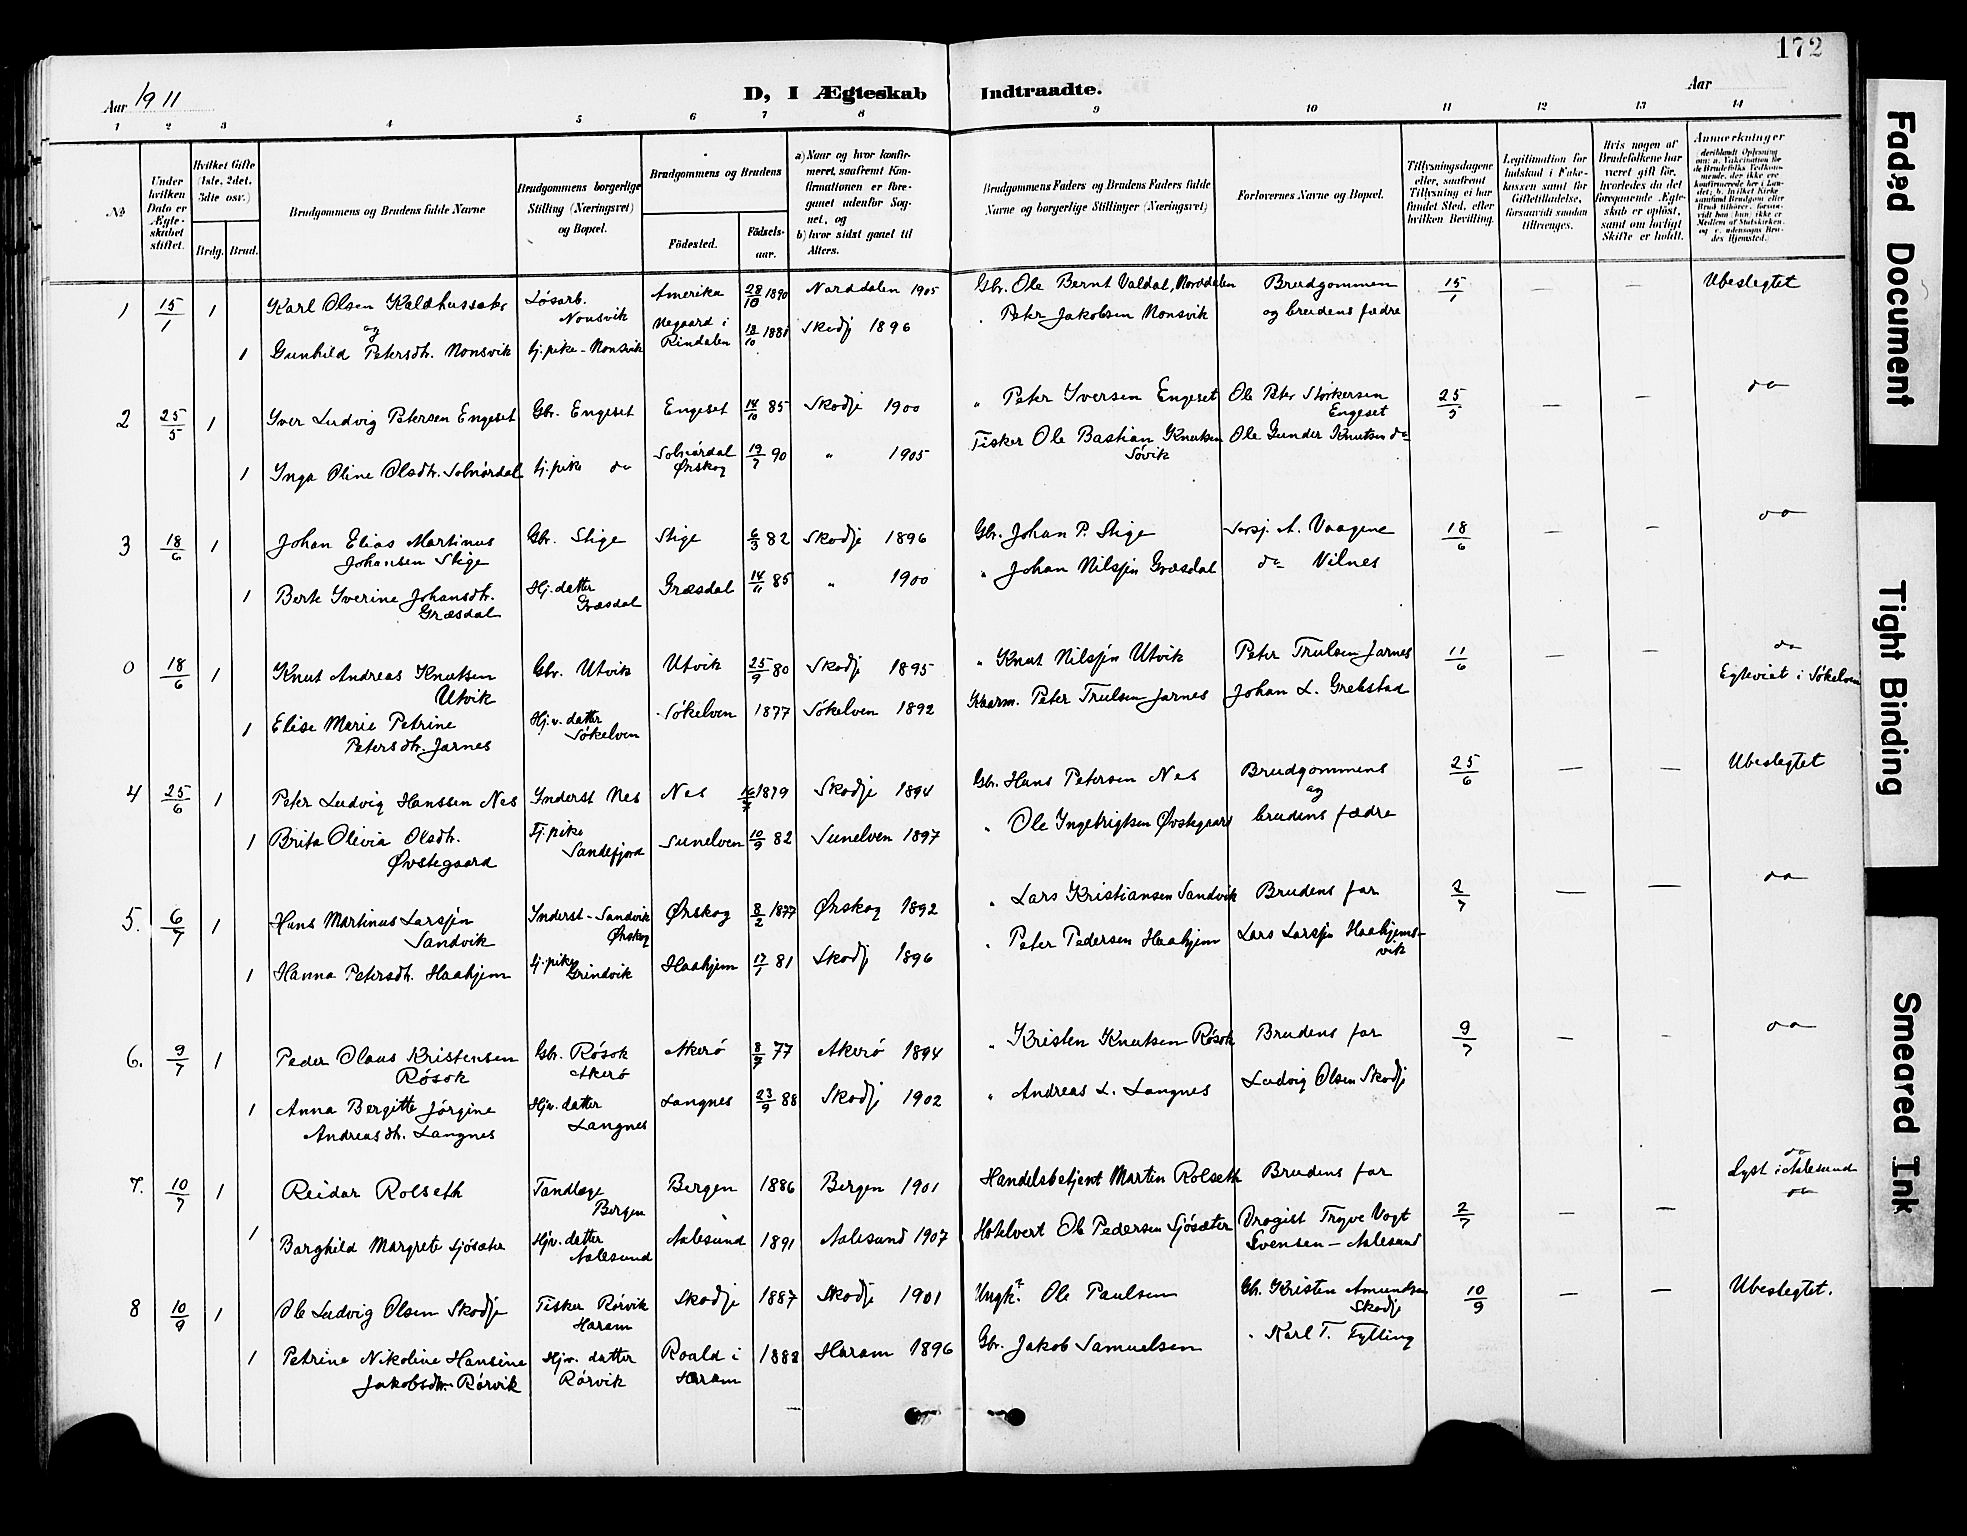 172
Aar 1911
D, I Ægteskab Indtraadte.
Aar
1 2 3 4 5 6 7 8 9 10 11 12 13 14
No
Under hvilken Dato er Ægteskabet stiftet.
Hvilket Gifte (1ste, 2det, 3die osv.)
Brdg. Brud.
Brudgommens og Brudens fulde Navne
Brudgommens borgerlige Stilling (Næringsvei) og Bopæl.
Brudgommens og Brudens
Födested.
Födselsaar.
a) Naar og hvor konfirmeret, saafremt Konfirmationen er foregaaet udenfor Sognet, og
b) hvor sidst gaaet til Alters.
Brudgommens Faders og Brudens Faders fulde Navne og borgerlige Stillinger (Næringsvei)
Forlovernes Navne og Bopæl.
Tillysningsdagene eller, saafremt Tillysning ei har fundet Sted, efter hvilken Bevilling.
Legitimation for Indskud i Enkekassen samt for Giftetilladelse, forsaavidt saadan tiltrænges.
Hvis nogen af Brudefolkene har været gift för, hvorledes da det foregaaende Ægteskab er oplöst, samt om lovligt Skifte er holdt.
Anmærkninger
1 15/1 1 Karl Olsen Kaldhussæter Løsarb. Nonsvik Amerika 28/10 1890 Norddalen 1905 Gbr. Ole Bernt Valdal, Norddalen Brudgommen 15/1 — — Ubeslegtet
og
1 Gunhild Petersdtr. Nonsvik tj.pike - Nonsvik Negaard i Rindalen 18/10 1881 Skodje 1896 " Peter Jakobsen Nonsvik og brudens fædre
2 25/5 1 Yver Ludvig Petersen Engeset Gbr. Engeset Engeset 14/10 85 Skodje 1900 " Peter Yversen Engeset Ole Peter Størkersen Engeset 25/5 — — do
1 Inga Oline Olsdtr. Solnørdal tj.pike do Solnørdal Ørskog 19/7 90 " 1905 Fisker Ole Bastian Knutsen Søvik Ole Gunder Knutsen do
3 18/6 1 Johan Elias Martinus Johansen Stige Gbr. Stige Stige 6/3 82 Skodje 1896 Gbr. Johan P. Stige Sersj. A. Vaagene 18/6 — — do
1 Berte Yverine Johansdtr. Græsdal Hj.datter Græsdal Græsdal 14/11 85 " 1900 " Johan Nilssen Græsdal do Vilnes
0 18/6 1 Knut Andreas Knutsen Utvik Gbr. Utvik Utvik 25/9 80 Skodje 1895 " Knut Nilssen Utvik Peter Trulsen Jarnes 11/6 — — do
Egteviet i Søkelven
1 Elise Marie Petrine Petersdtr. Jarnes Hj.v. datter Søkelven Søkelven 1877 Søkelven 1892 Kaarm. Peter Trulsen Jarnes Johan L. Grebstad
4 25/6 1 Peter Ludvig Hanssen Nes Inderst Nes Nes 1879 Skodje 1894 Gbr. Hans Petersen Nes Brudgommens og 25/6 — — Ubeslegtet
1 Brita Olivia Olsdtr. Øvstegaard Tj.pike Sandefjord Sunelven 10/9 82 Sunelven 1897 " Ole Ingebrigtsen Øvstegaard brudens fædre
5. 6/7 1 Hans Martinus Larssen Sandvik Inderst - Sandvik Ørskog Ørskog 8/2 1877 Ørskog 1892 " Lars Kristiansen Sandvik Brudens far 2/7 — — do
1 Hanna Petersdtr. Haahjem tj.pike Grindvik Haahjem 17/1 81 Skodje 1896 " Peter Pedersen Haahjem Lars Larssen Haahjemsvik
6. 9/7 1 Peder Olaus Kristensen Røsok Gbr. Røsok Akerø Akerø 8/7 77 Akerø 1894 " Kristen Knutsen Røsok Brudens far 9/7 — — do
1 Anna Bergitte Jørgine Andreasdtr. Langnes Hjv. datter Langnes Langnes 23/9 88 Skodje 1902 " Andreas L. Langnes Ludvig Olsen Skodje
7. 10/7 1 Reidar Rolseth Tandlæge Bergen Bergen 1886 Bergen 1901 Handelsbetjent Martin Rolseth Brudens far 2/7 — — do
Lyst i Aalesund
do
1 Borghild Margrete Sjøsæter Hjv. datter Aalesund Aalesund 1891 Aalesund 1907 Hotelvert Ole Pedersen Sjøsæter Drogist Trygve Vogt Svensen - Aalesund
8 10/9 1 Ole Ludvig Olsen Skodje Fisker Rørvik Haram Skodje 1887 Skodje 1901 Ungk. Ole Paulsen Gbr. Kristen Amundsen Skodje 10/9 — — Ubeslegtet.
1 Petrine Nikoline Hansine Jakobsdtr. Rørvik Hjv. datter Rørvik Roald i Haram 1882 Haram 1896 Gbr. Jakob Samuelsen " Karl T. Fylling
Faded Document
Tight Binding
Smeared Ink